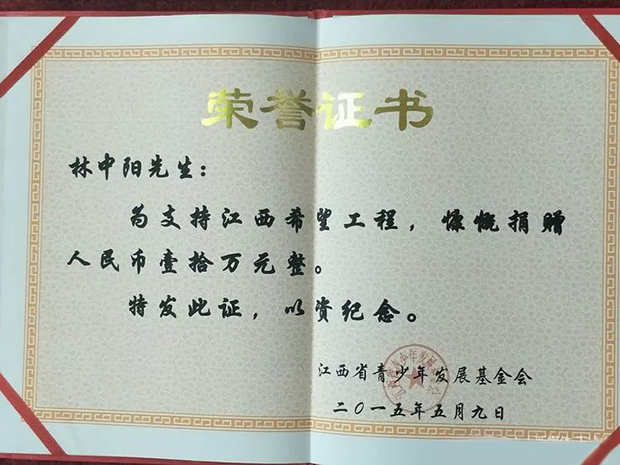 荣誉证书
林中阳先生：
为支持江西希望工程，慷慨捐赠
人民币壹拾万元整。
特发此证，以资纪念。
江西省青少年发展基金会
二〇一五年五月九日